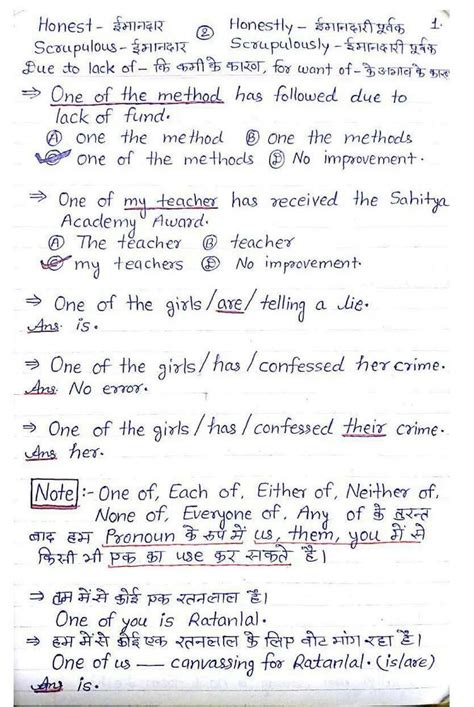 Honest - ईमानदार ② Honestly - ईमानदारी पूर्वक 1.
Scrupulous - ईमानदार Scrupulously - ईमानदारी पूर्वक
Due to lack of - कि कमी के कारण, for want of - के अभाव के कारण
⇒ One of the method has followed due to
lack of fund.
Ⓐ one the method Ⓑ one the methods
Ⓒ one of the methods Ⓓ No improvement.
⇒ One of my teacher has received the Sahitya
Academy Award.
Ⓐ The teacher Ⓑ teacher
Ⓒ my teachers Ⓓ No improvement.
⇒ One of the girls/are/telling a lie.
Ans. is.
⇒ One of the girls/has/confessed her crime.
Ans. No error.
⇒ One of the girls/has/confessed their crime.
Ans her.
Note :- One of, Each of, Either of, Neither of,
None of, Everyone of, Any of के तुरन्त
बाद हम Pronoun के रुप में us, them, you में से
किसी भी एक का use कर सकते है।
⇒ तुम में से कोई एक रतनलाल है।
One of you is Ratanlal.
⇒ हम में से कोई एक रतनलाल के लिए वोट मांग रहा है।
One of us — canvassing for Ratanlal. (is/are)
Ans is.